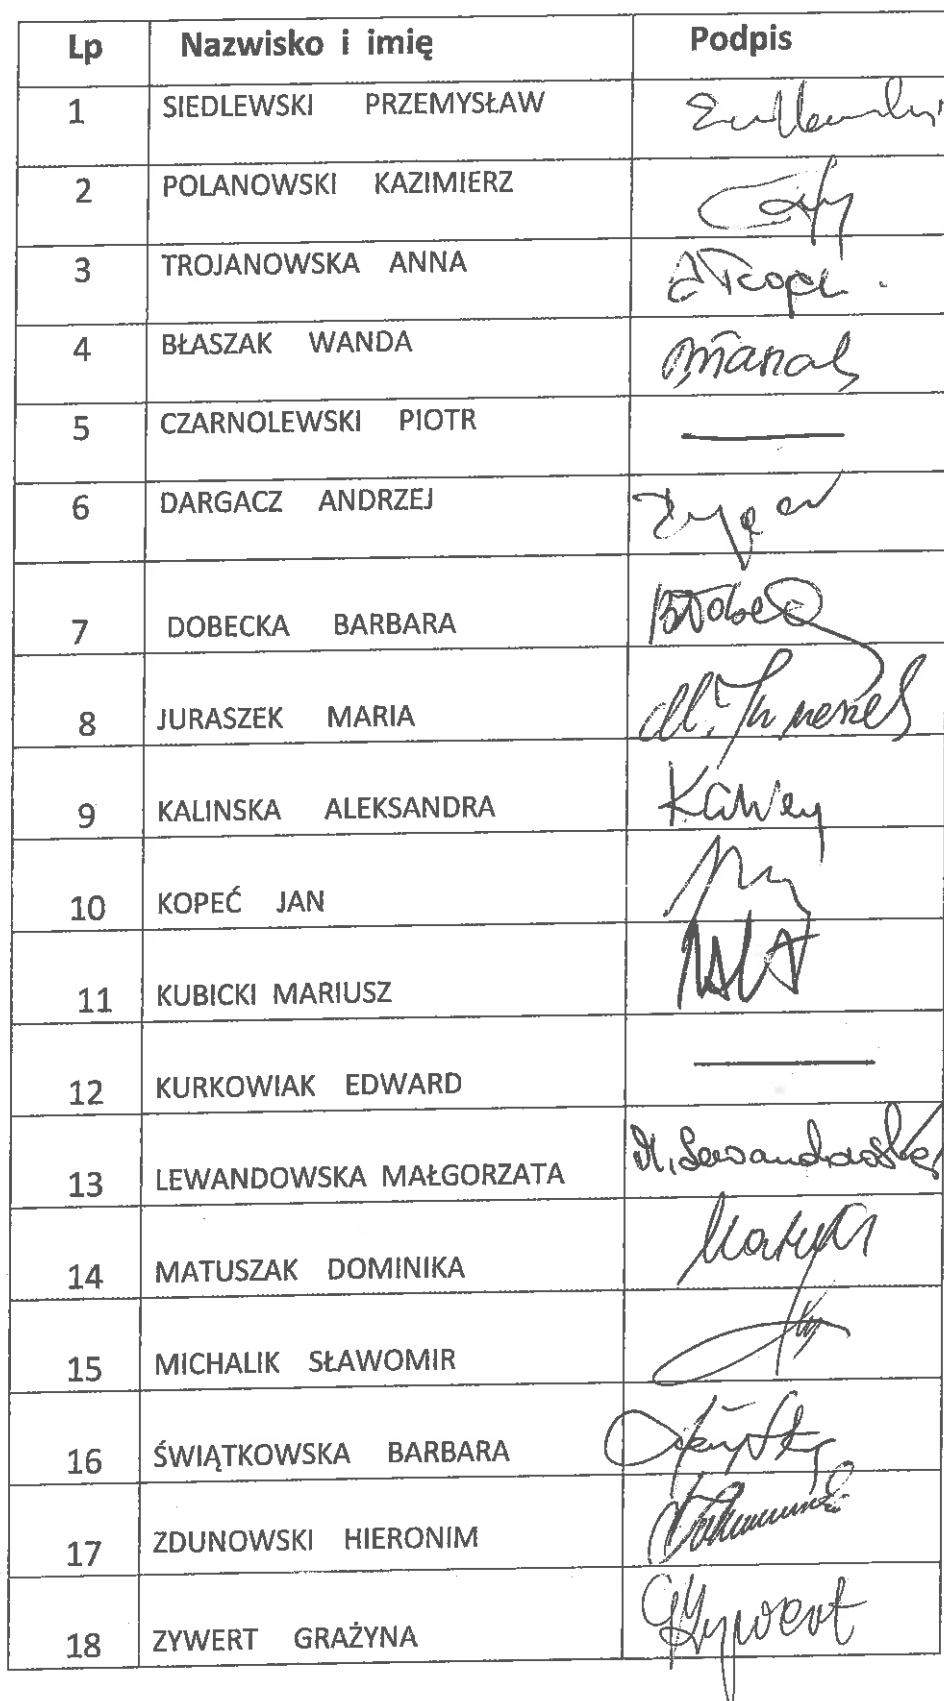 Lp Nazwisko i imię Podpis
1 SIEDLEWSKI PRZEMYSŁAW
2 POLANOWSKI KAZIMIERZ
3 TROJANOWSKA ANNA
4 BŁASZAK WANDA
5 CZARNOLEWSKI PIOTR —
6 DARGACZ ANDRZEJ
7 DOBECKA BARBARA
8 JURASZEK MARIA M. Juraszek
9 KALINSKA ALEKSANDRA
10 KOPEĆ JAN
11 KUBICKI MARIUSZ
12 KURKOWIAK EDWARD —
13 LEWANDOWSKA MAŁGORZATA M. Lewandowska
14 MATUSZAK DOMINIKA
15 MICHALIK SŁAWOMIR
16 ŚWIĄTKOWSKA BARBARA
17 ZDUNOWSKI HIERONIM
18 ZYWERT GRAŻYNA GZywert